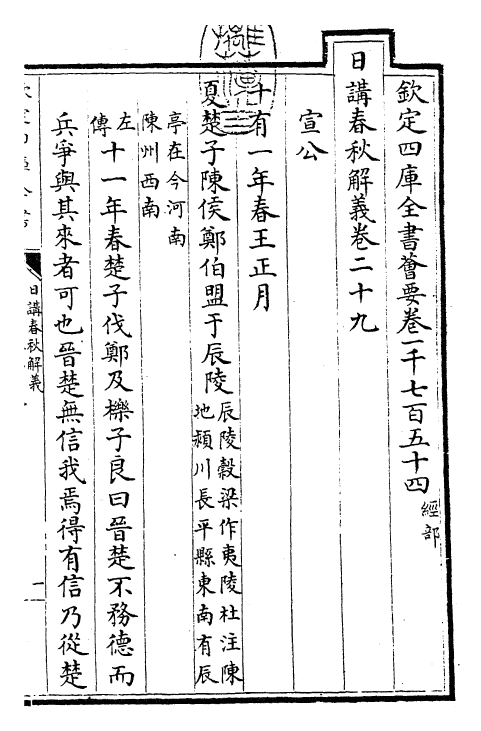 欽定四庫全書薈要卷一千七百五十四
經部
日講春秋解義卷二十九
宣公
十有一年春王正月
夏楚子陳侯鄭伯盟于辰陵
辰陵穀梁作夷陵杜注陳
地潁川長平縣東南有辰
亭在今河南
陳州西南
左
傳
十一年春楚子伐鄭及櫟子良曰晉楚不務德而
兵爭與其來者可也晉楚無信我焉得有信乃從楚
日講春秋解義
一